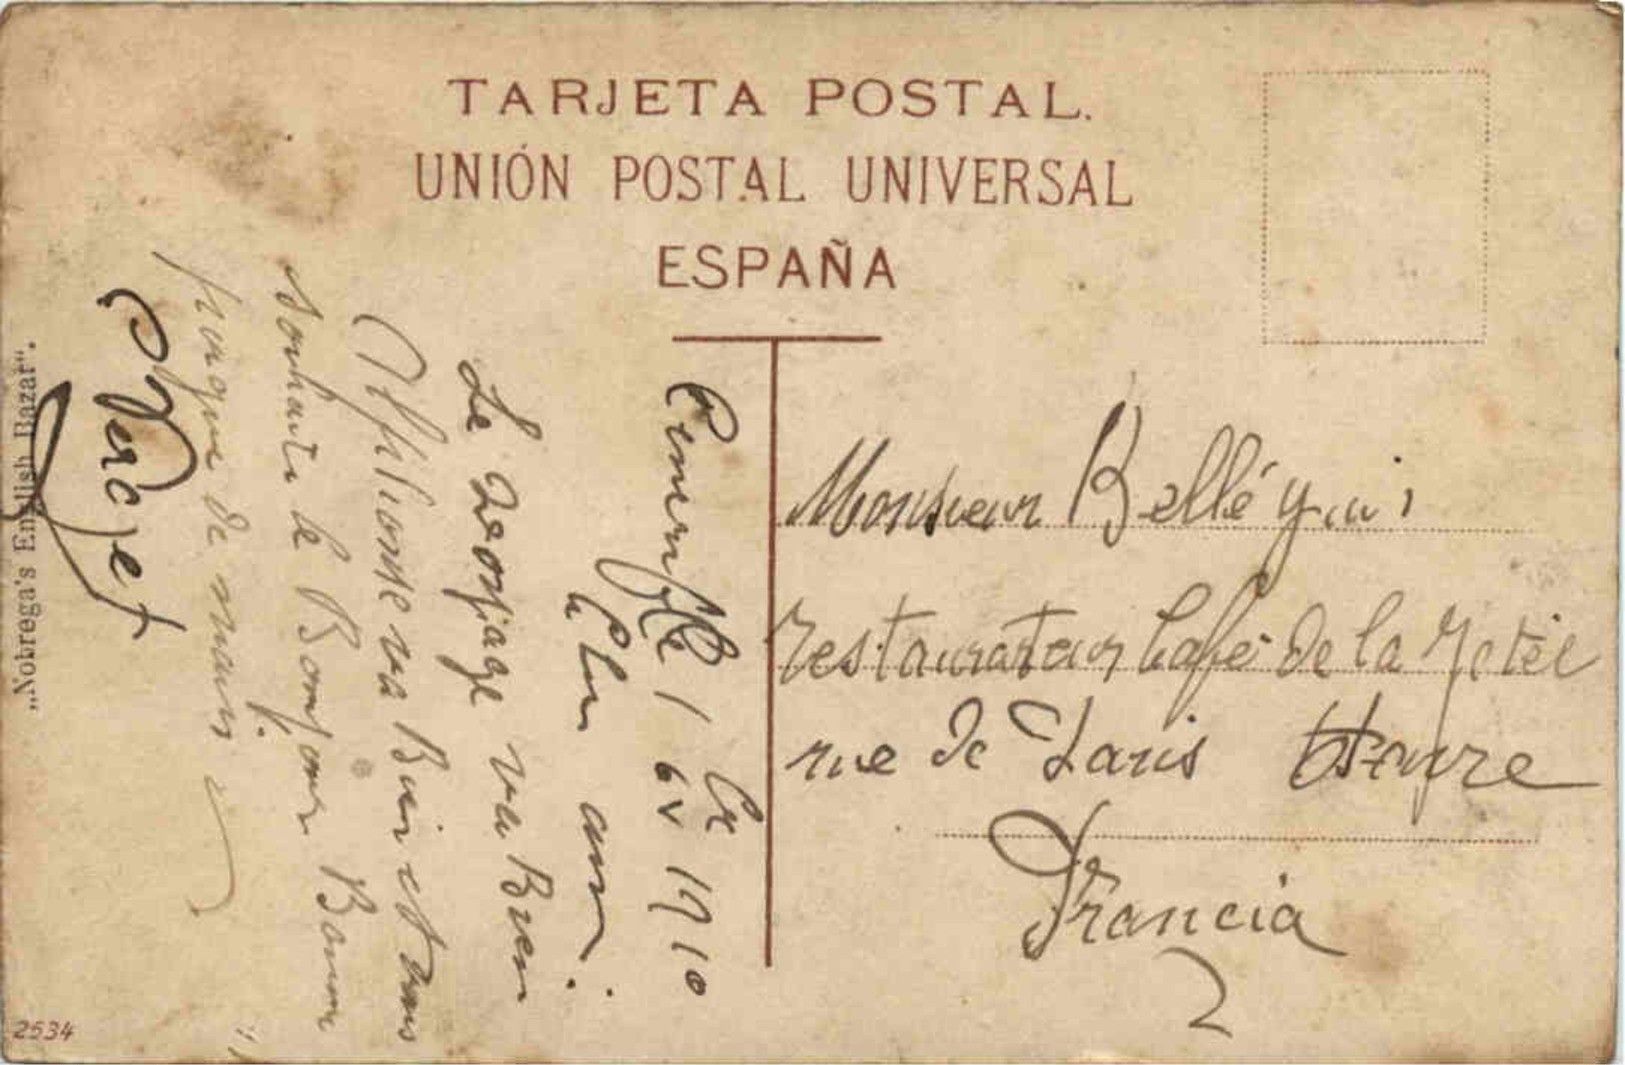 TARJETA POSTAL.
UNIÓN POSTAL UNIVERSAL
ESPAÑA
Monsieur
restaurateur Café de la Jetée
rue de Paris
Francia
1910
ami
Le voyage va Bien
va Bien et vous
souhaite le Bonjour Bonne
de main
Verget
„Nobrega's English Bazar".
2534